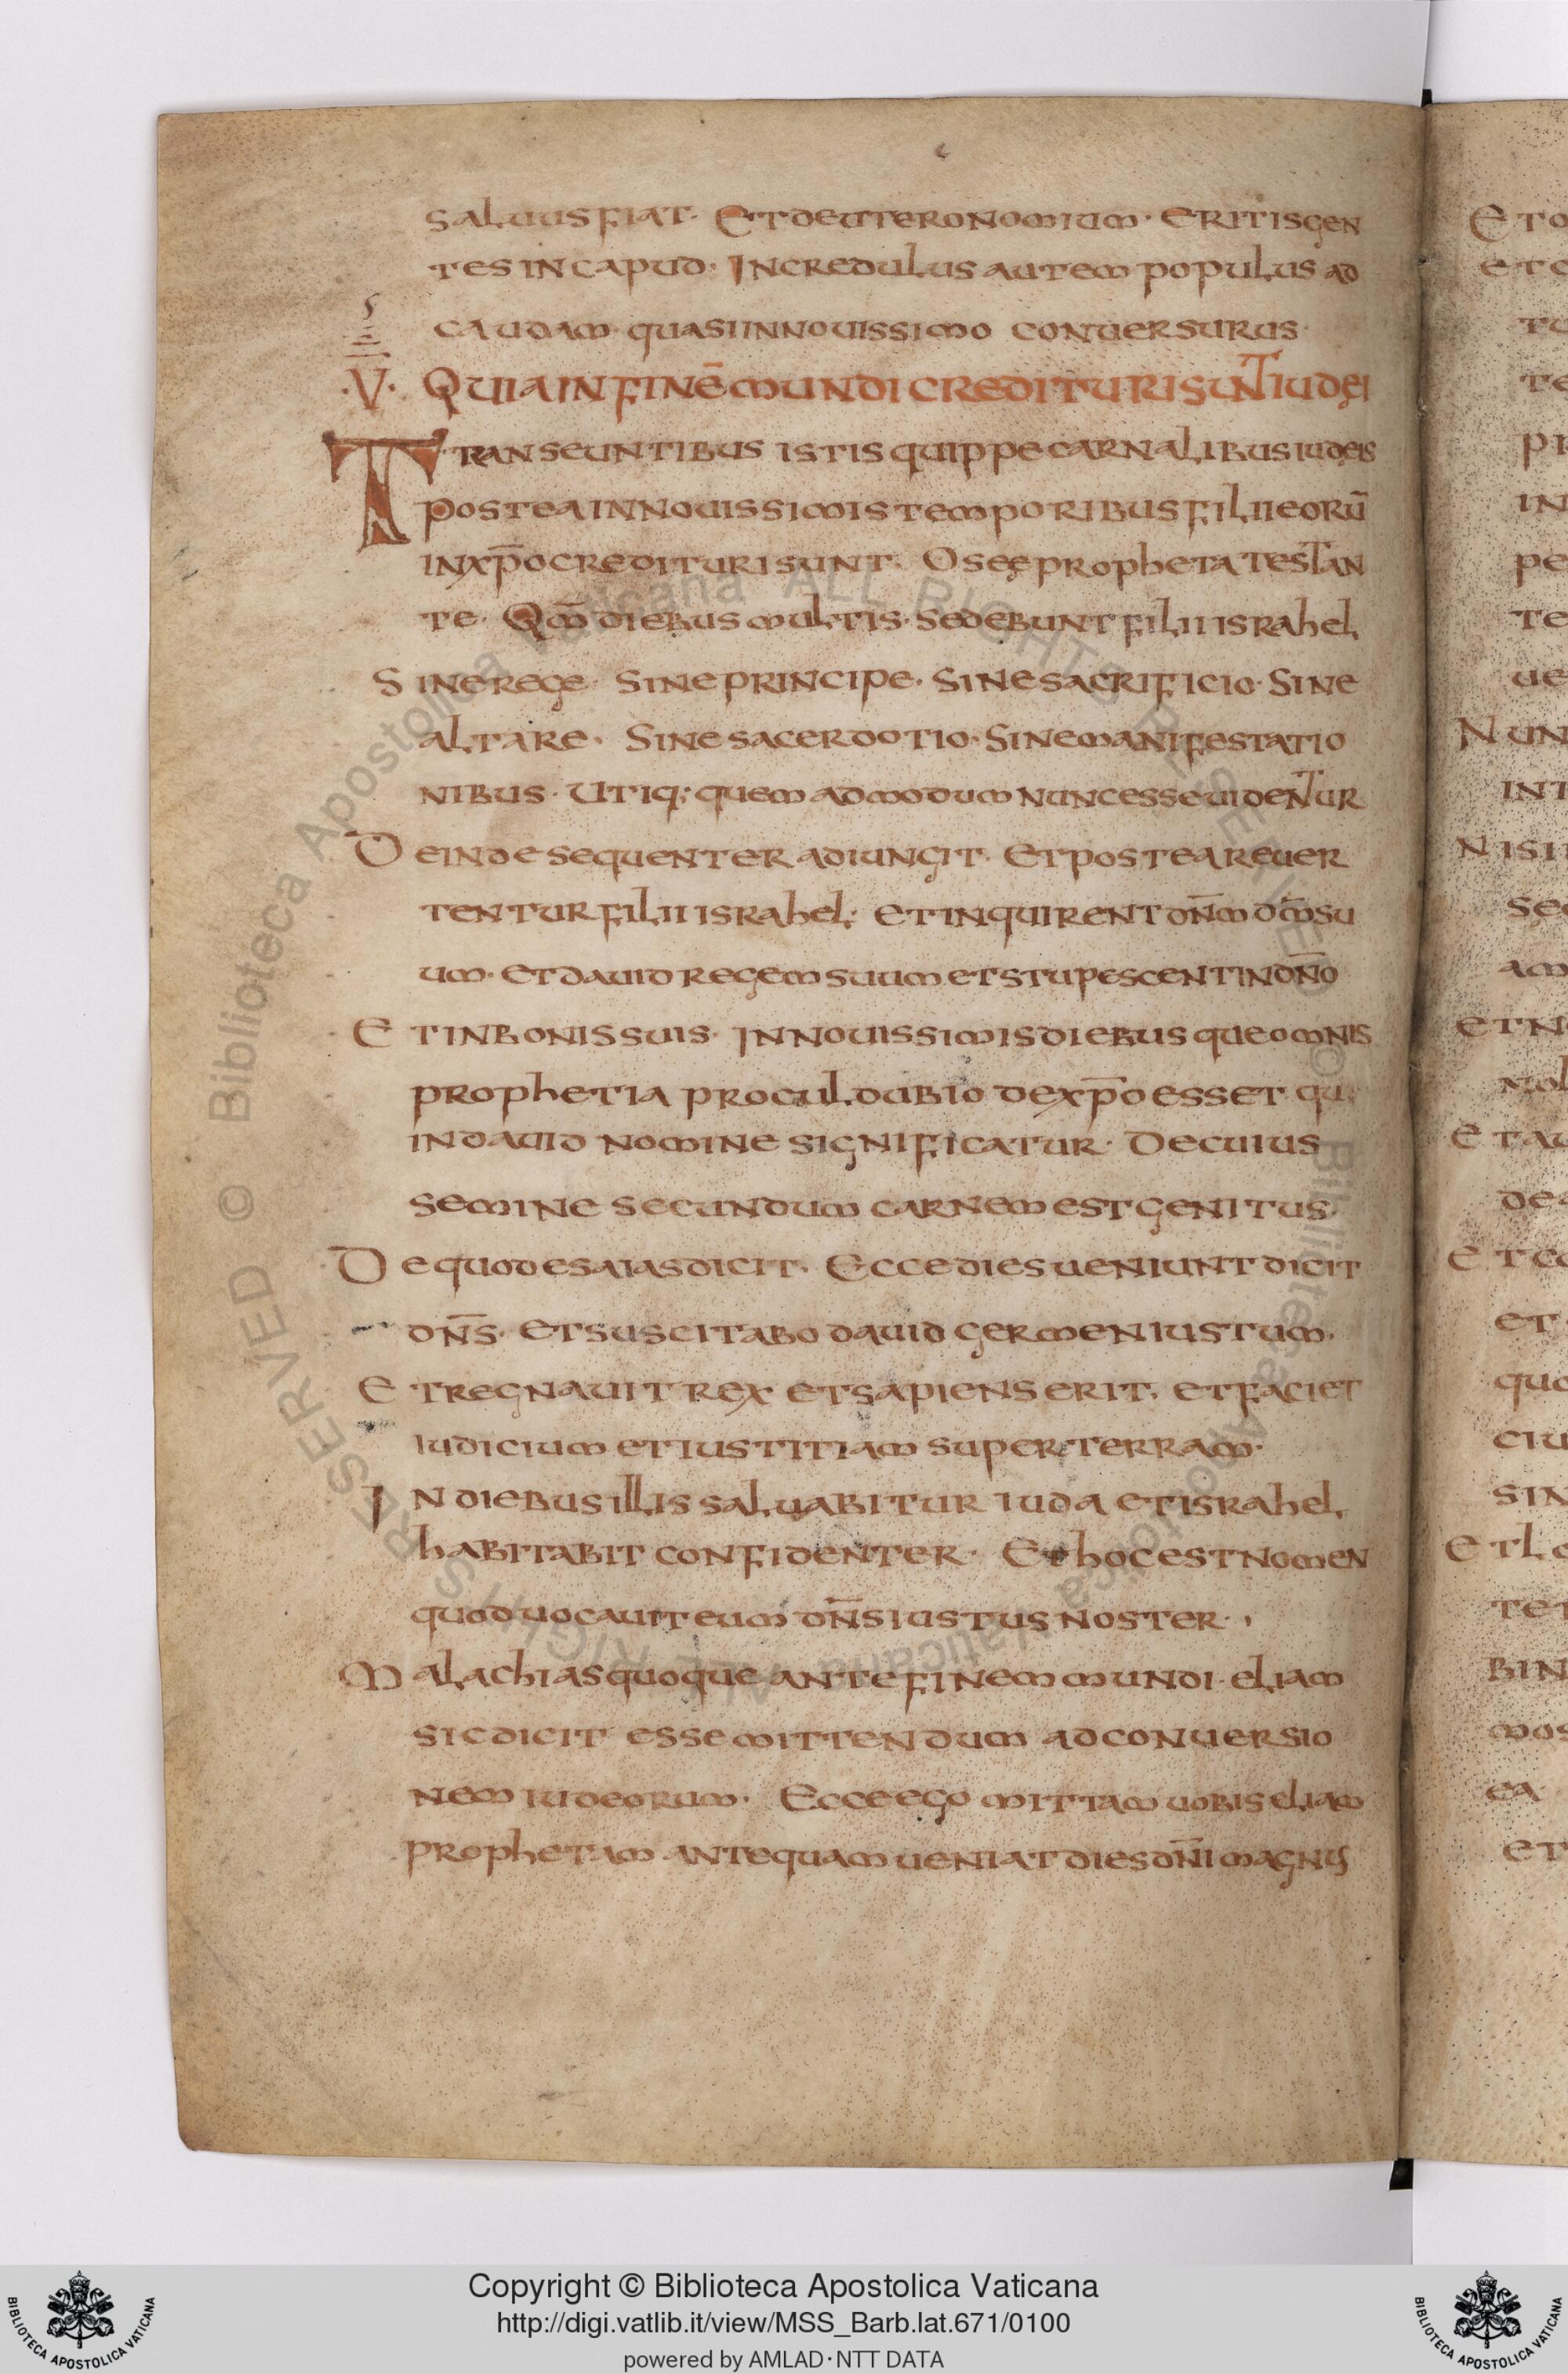 saluus fiat. Et deuteronomium. eritis gen
tes in capud. Incredulus autem populus ad
caudam. quasi in nouissimo conuersurus.
.V. Quia in finē mundi credituri sunt iudęi
Transeuntibus istis quippe carnalibus iudęis
postea in nouissimis temporibus filii eorū
in xp̄o credituri sunt. Oseę propheta testan
te. Qm̄ diebus multis. sedebunt filii israhel
Sine rege. sine principe. sine sacrificio. sine
altare. Sine sacerdotio. sine manifestatio
nibus. Utiq; quem ad modum nunc esse uidentur
Deinde sequenter adiungit. Et postea reuer
tentur filii israhel. et inquirent dn̄m dm̄ su
um. et dauid regem suum et stupescent in dn̄o
Et in bonis suis. In nouissimis diebus que omnis
prophetia procul dubio de xp̄o esset qui
in dauid nomine significatur. De cuius
semine secundum carnem est genitus.
De quod esaias dicit. Ecce dies ueniunt dicit
dn̄s. et suscitabo dauid germen iustum.
Et regnauit rex et sapiens erit. et faciet
iudicium et iustitiam super terram.
In diebus illis saluabitur iuda et israhel
habitabit confidenter. Et hoc est nomen
quod uocauit eum dn̄s iustus noster.
Malachias quoque ante finem mundi. eliam
sic dicit esse mittendum ad conuersio
nem iudeorum. Ecce ego mittam uobis eliam
prophetam antequam ueniat dies dn̄i magnus
Copyright © Biblioteca Apostolica Vaticana
http://digi.vatlib.it/view/MSS_Barb.lat.671/0100
powered by AMLAD·NTT DATA
BIBLIOTECA APOSTOLICA VATICANA
BIBLIOTECA APOSTOLICA VATICANA